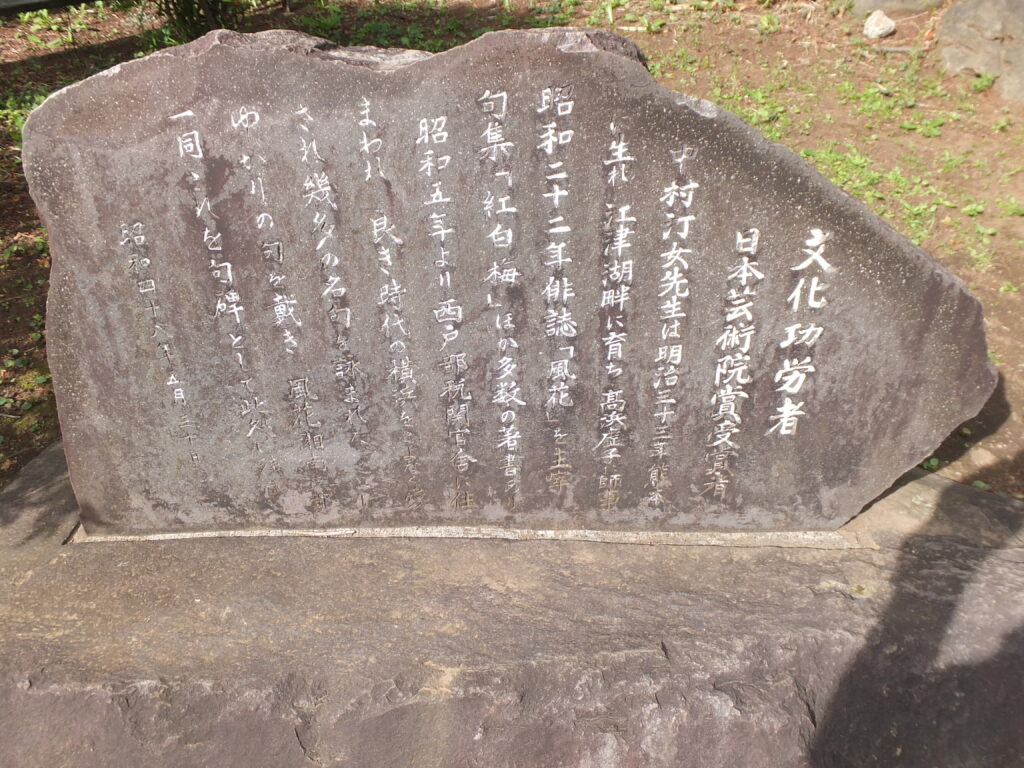 文化功労者
日本芸術院賞受賞者
中村汀女先生は明治三十三年熊本
に生れ 江津湖畔に育ち 高浜虚子に師事
昭和二十二年俳誌「風花」を主宰
句集「紅白梅」ほか多数の著書あり
昭和五年より西戸部税関官舎に住
まわれ 良き時代の横浜をこよなく愛
され幾多の名句を詠まれた
ゆかりの句を戴き 風花
一同これを句碑として此処に
昭和四十八年五月二十日